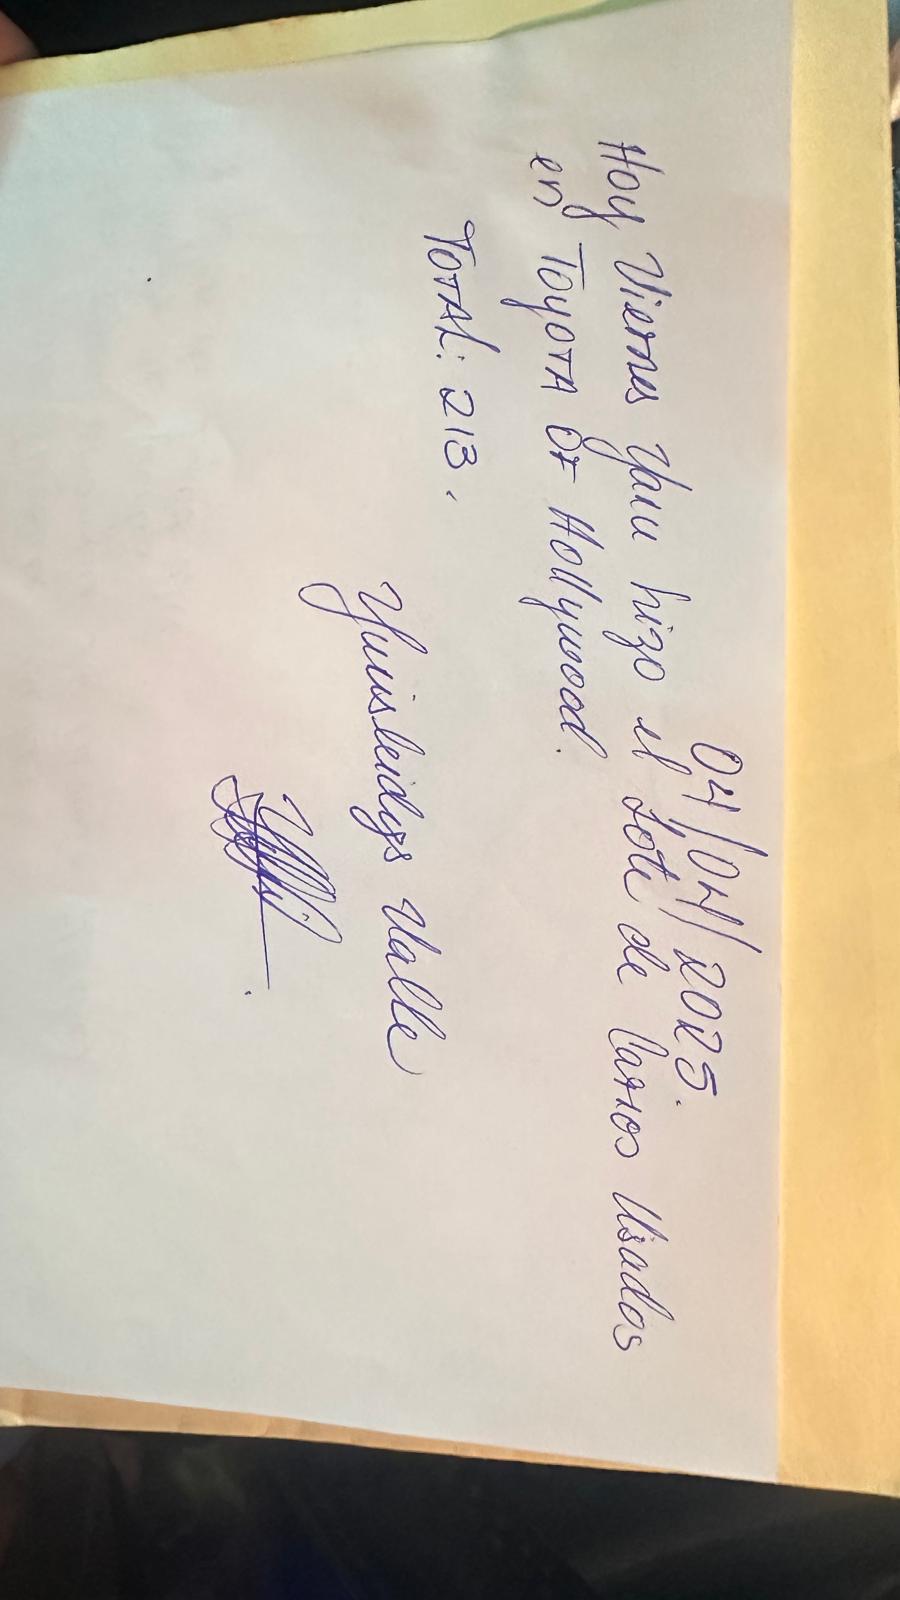 04/04/2025.
Hoy Viernes Yani hizo el Lote de Carros Usados
en Toyota Of Hollywood.
TOTAL: 213.
Yunisleidys Valle